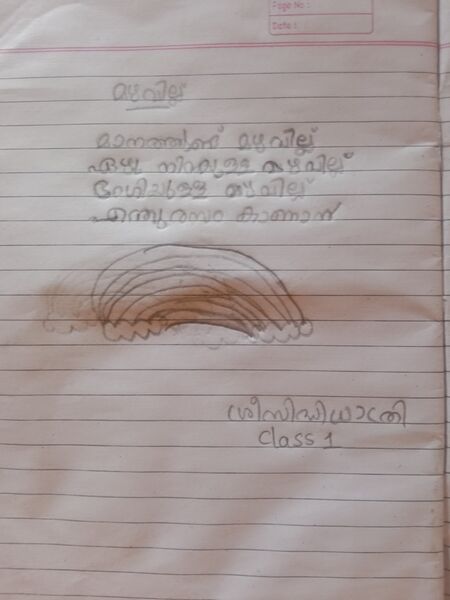 Page No :
Date :
മഴവില്ല്
മാനത്തുണ്ട് മഴവില്ല്
ഏഴു നിറമുള്ള മഴവില്ല്
ഭംഗിയുള്ള മഴവില്ല്
എന്തു രസം കാണാൻ
ശ്രീസിദ്ധിധാത്രി
Class 1